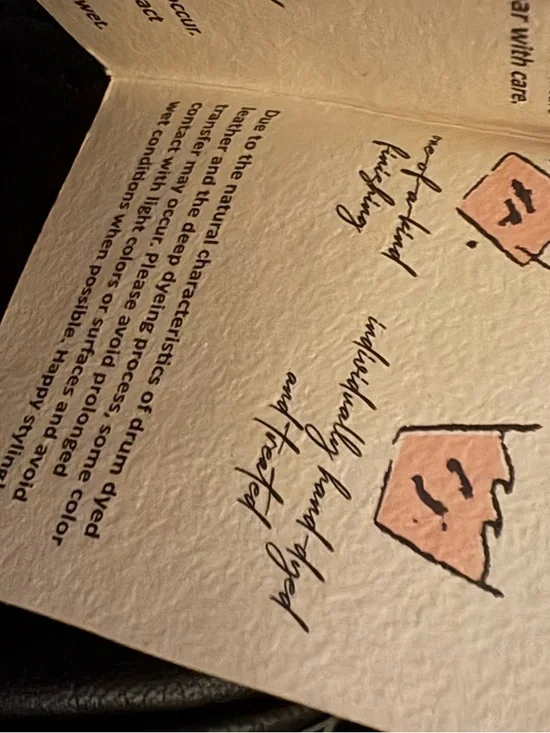 ar with care.
occur.
act
wet.
ne-of-a-kind
finishing
individually hand-dyed
and treated
Due to the natural characteristics of drum dyed
leather and the deep dyeing process, some color
transfer may occur. Please avoid prolonged
contact with light colors or surfaces and avoid
wet conditions when possible. Happy styling!